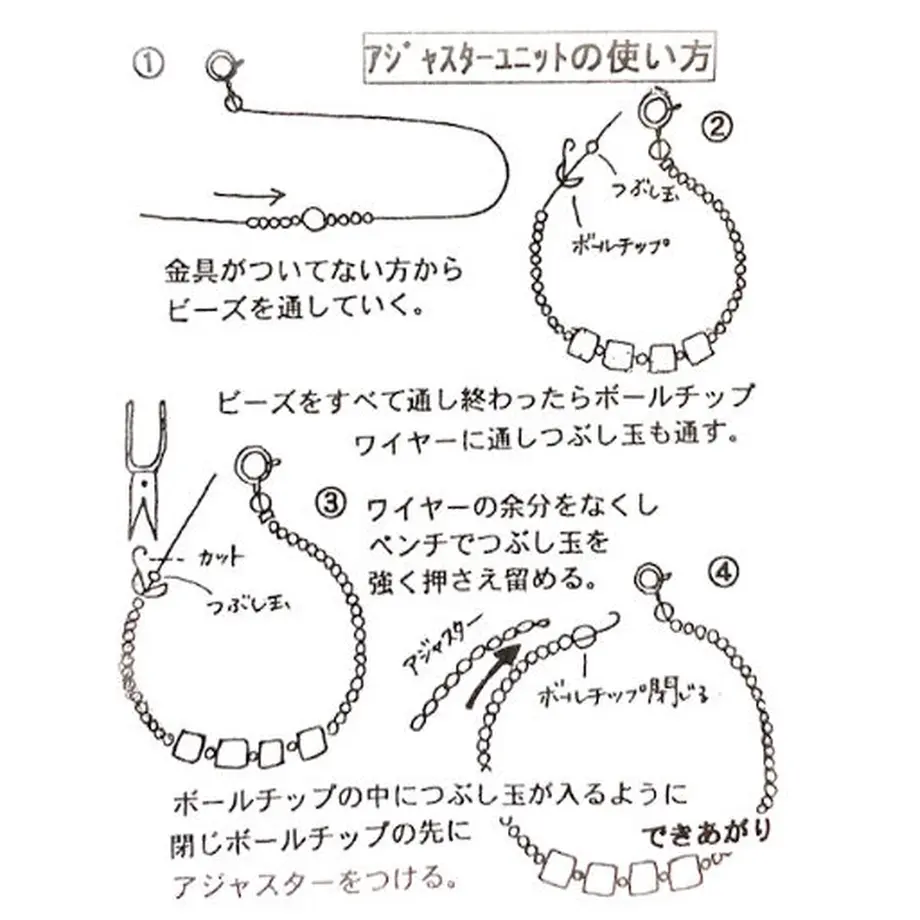 アジャスターユニットの使い方
①
金具がついてない方から
ビーズを通していく。
②
つぶし玉
ボールチップ
ビーズをすべて通し終わったらボールチップ
ワイヤーに通しつぶし玉も通す。
③
ワイヤーの余分をなくし
ペンチでつぶし玉を
強く押さえ留める。
カット
つぶし玉
④
アジャスター
ボールチップ閉じる
ボールチップの中につぶし玉が入るように
閉じボールチップの先に
アジャスターをつける。
できあがり